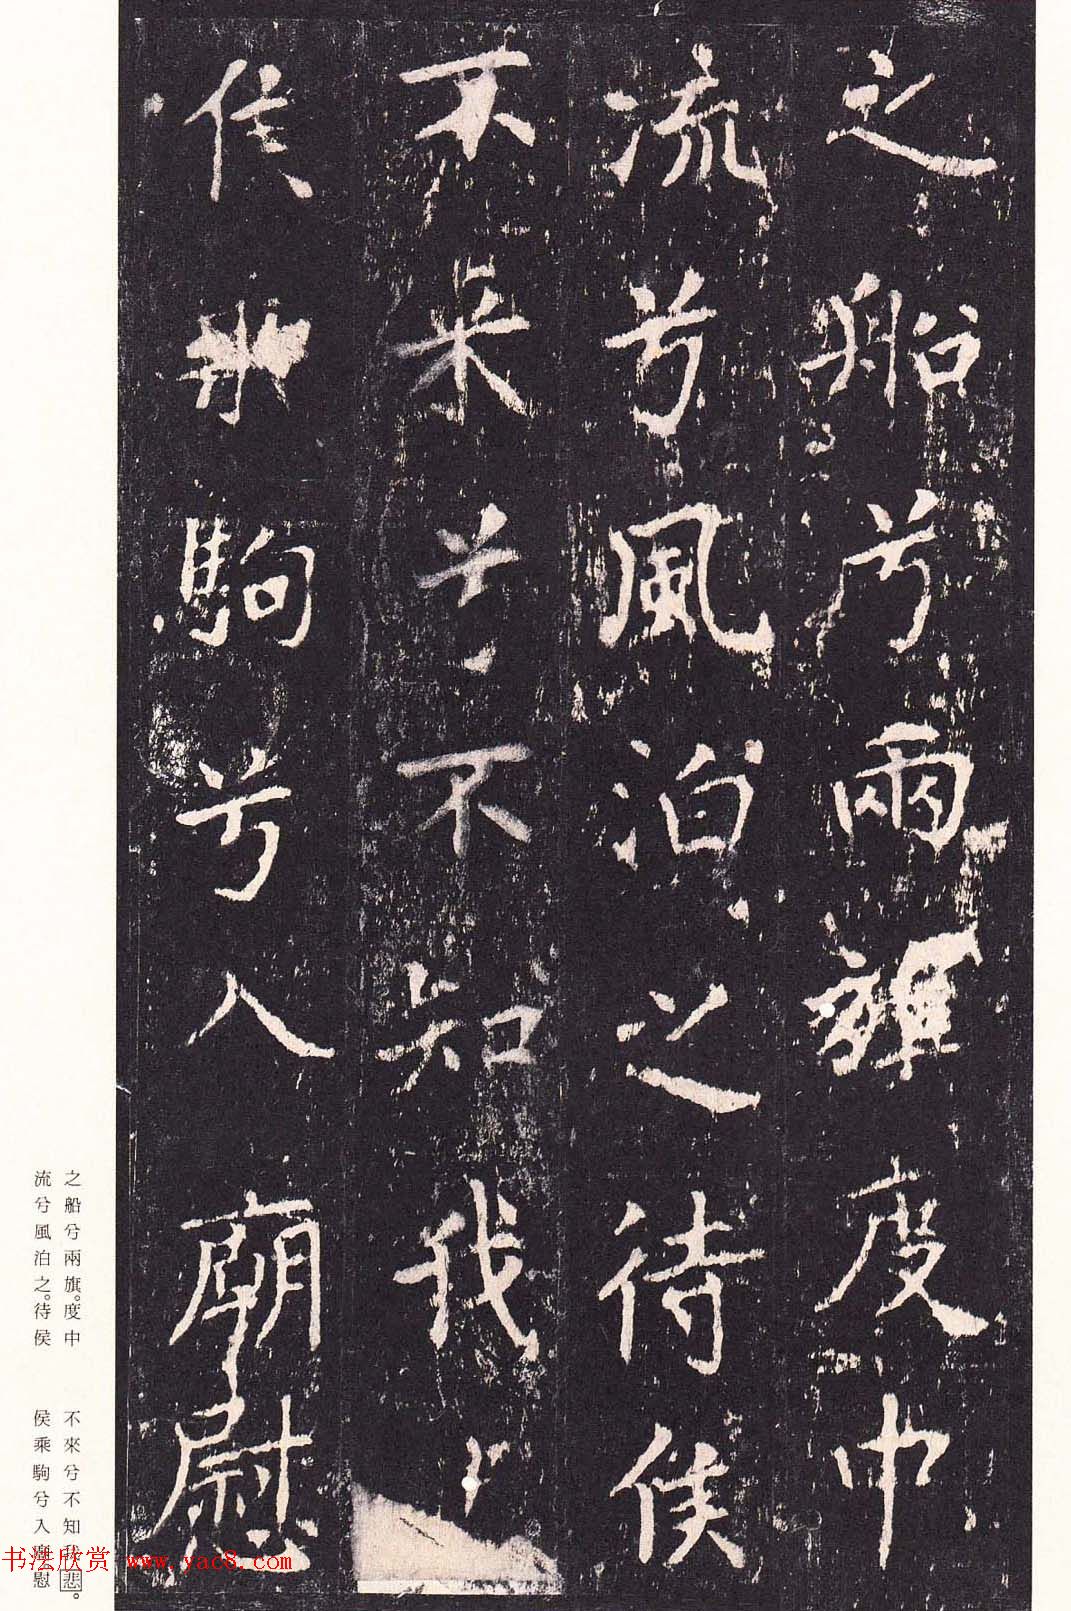 之船兮兩旗度中
流兮風泊之待侯
不來兮不知我
侯乘駒兮入廟慰
之船兮兩旗。度中
流兮風泊之。待侯
不來兮不知我悲。
侯乘駒兮入廟慰
书法欣赏 www.yac8.com